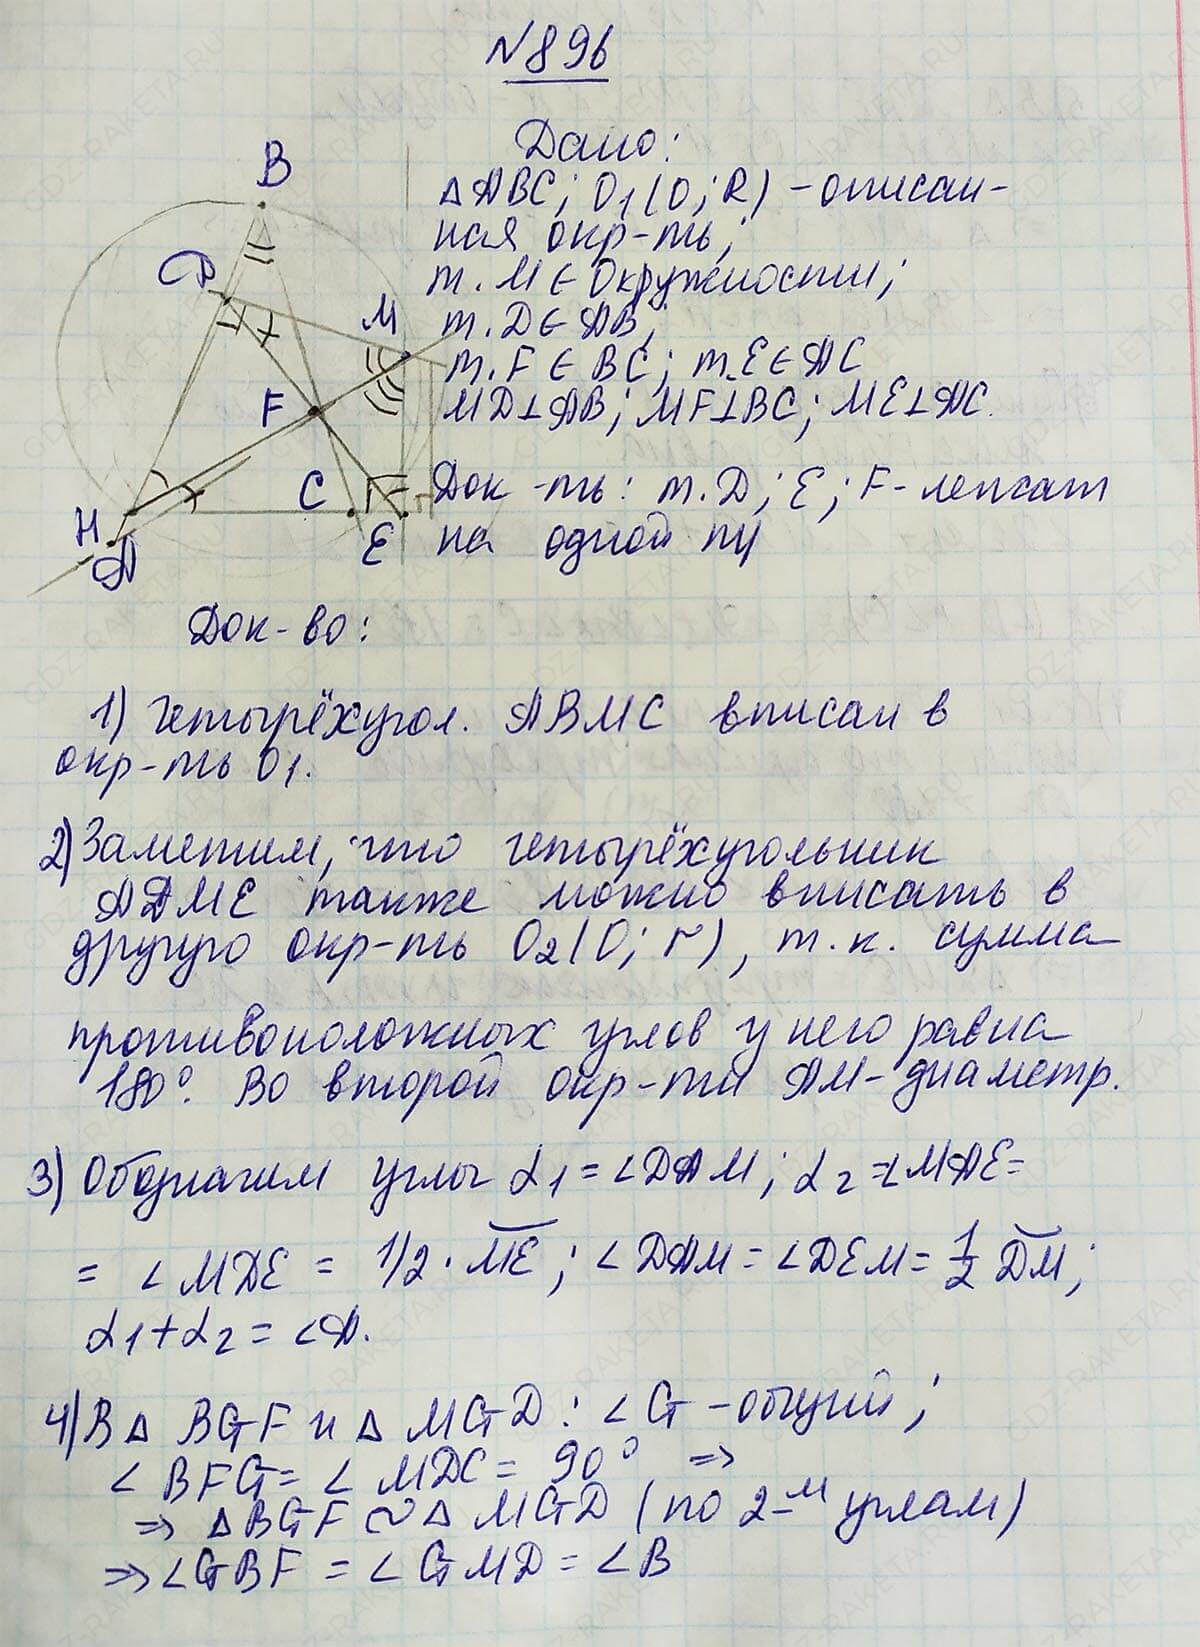 №896
Дано:
△ABC; O1(O; R) – описан-
ная окр-ть;
т. M ∈ окружности;
т. D ∈ AB;
т. F ∈ BC; т. E ∈ AC
MD⊥AB; MF⊥BC; ME⊥AC.
Док-ть: т. D; E; F – лежат
на одной пр
B
D
M
F
C
H
A
E
Док-во:
1) Четырёхугол. ABMC вписан в
окр-ть O1.
2) Заметим, что четырёхугольник
ADME также можно вписать в
другую окр-ть O2(O; r), т.к. сумма
противоположных углов у него равна
180°. Во второй окр-ти AM – диаметр.
3) Обозначим углы α1 = ∠DAM; α2 = ∠MAE =
= ∠MDE = 1/2 · ME; ∠DAM = ∠DEM = 1/2 DM;
α1 + α2 = ∠A.
4) В △ BGF и △ MGD: ∠G – общий;
∠BFG = ∠MDC = 90° ⇒
⇒ △BGF ∼ △MGD (по 2-м углам)
⇒ ∠GBF = ∠GMD = ∠B
GDZ-RAKETA.RU